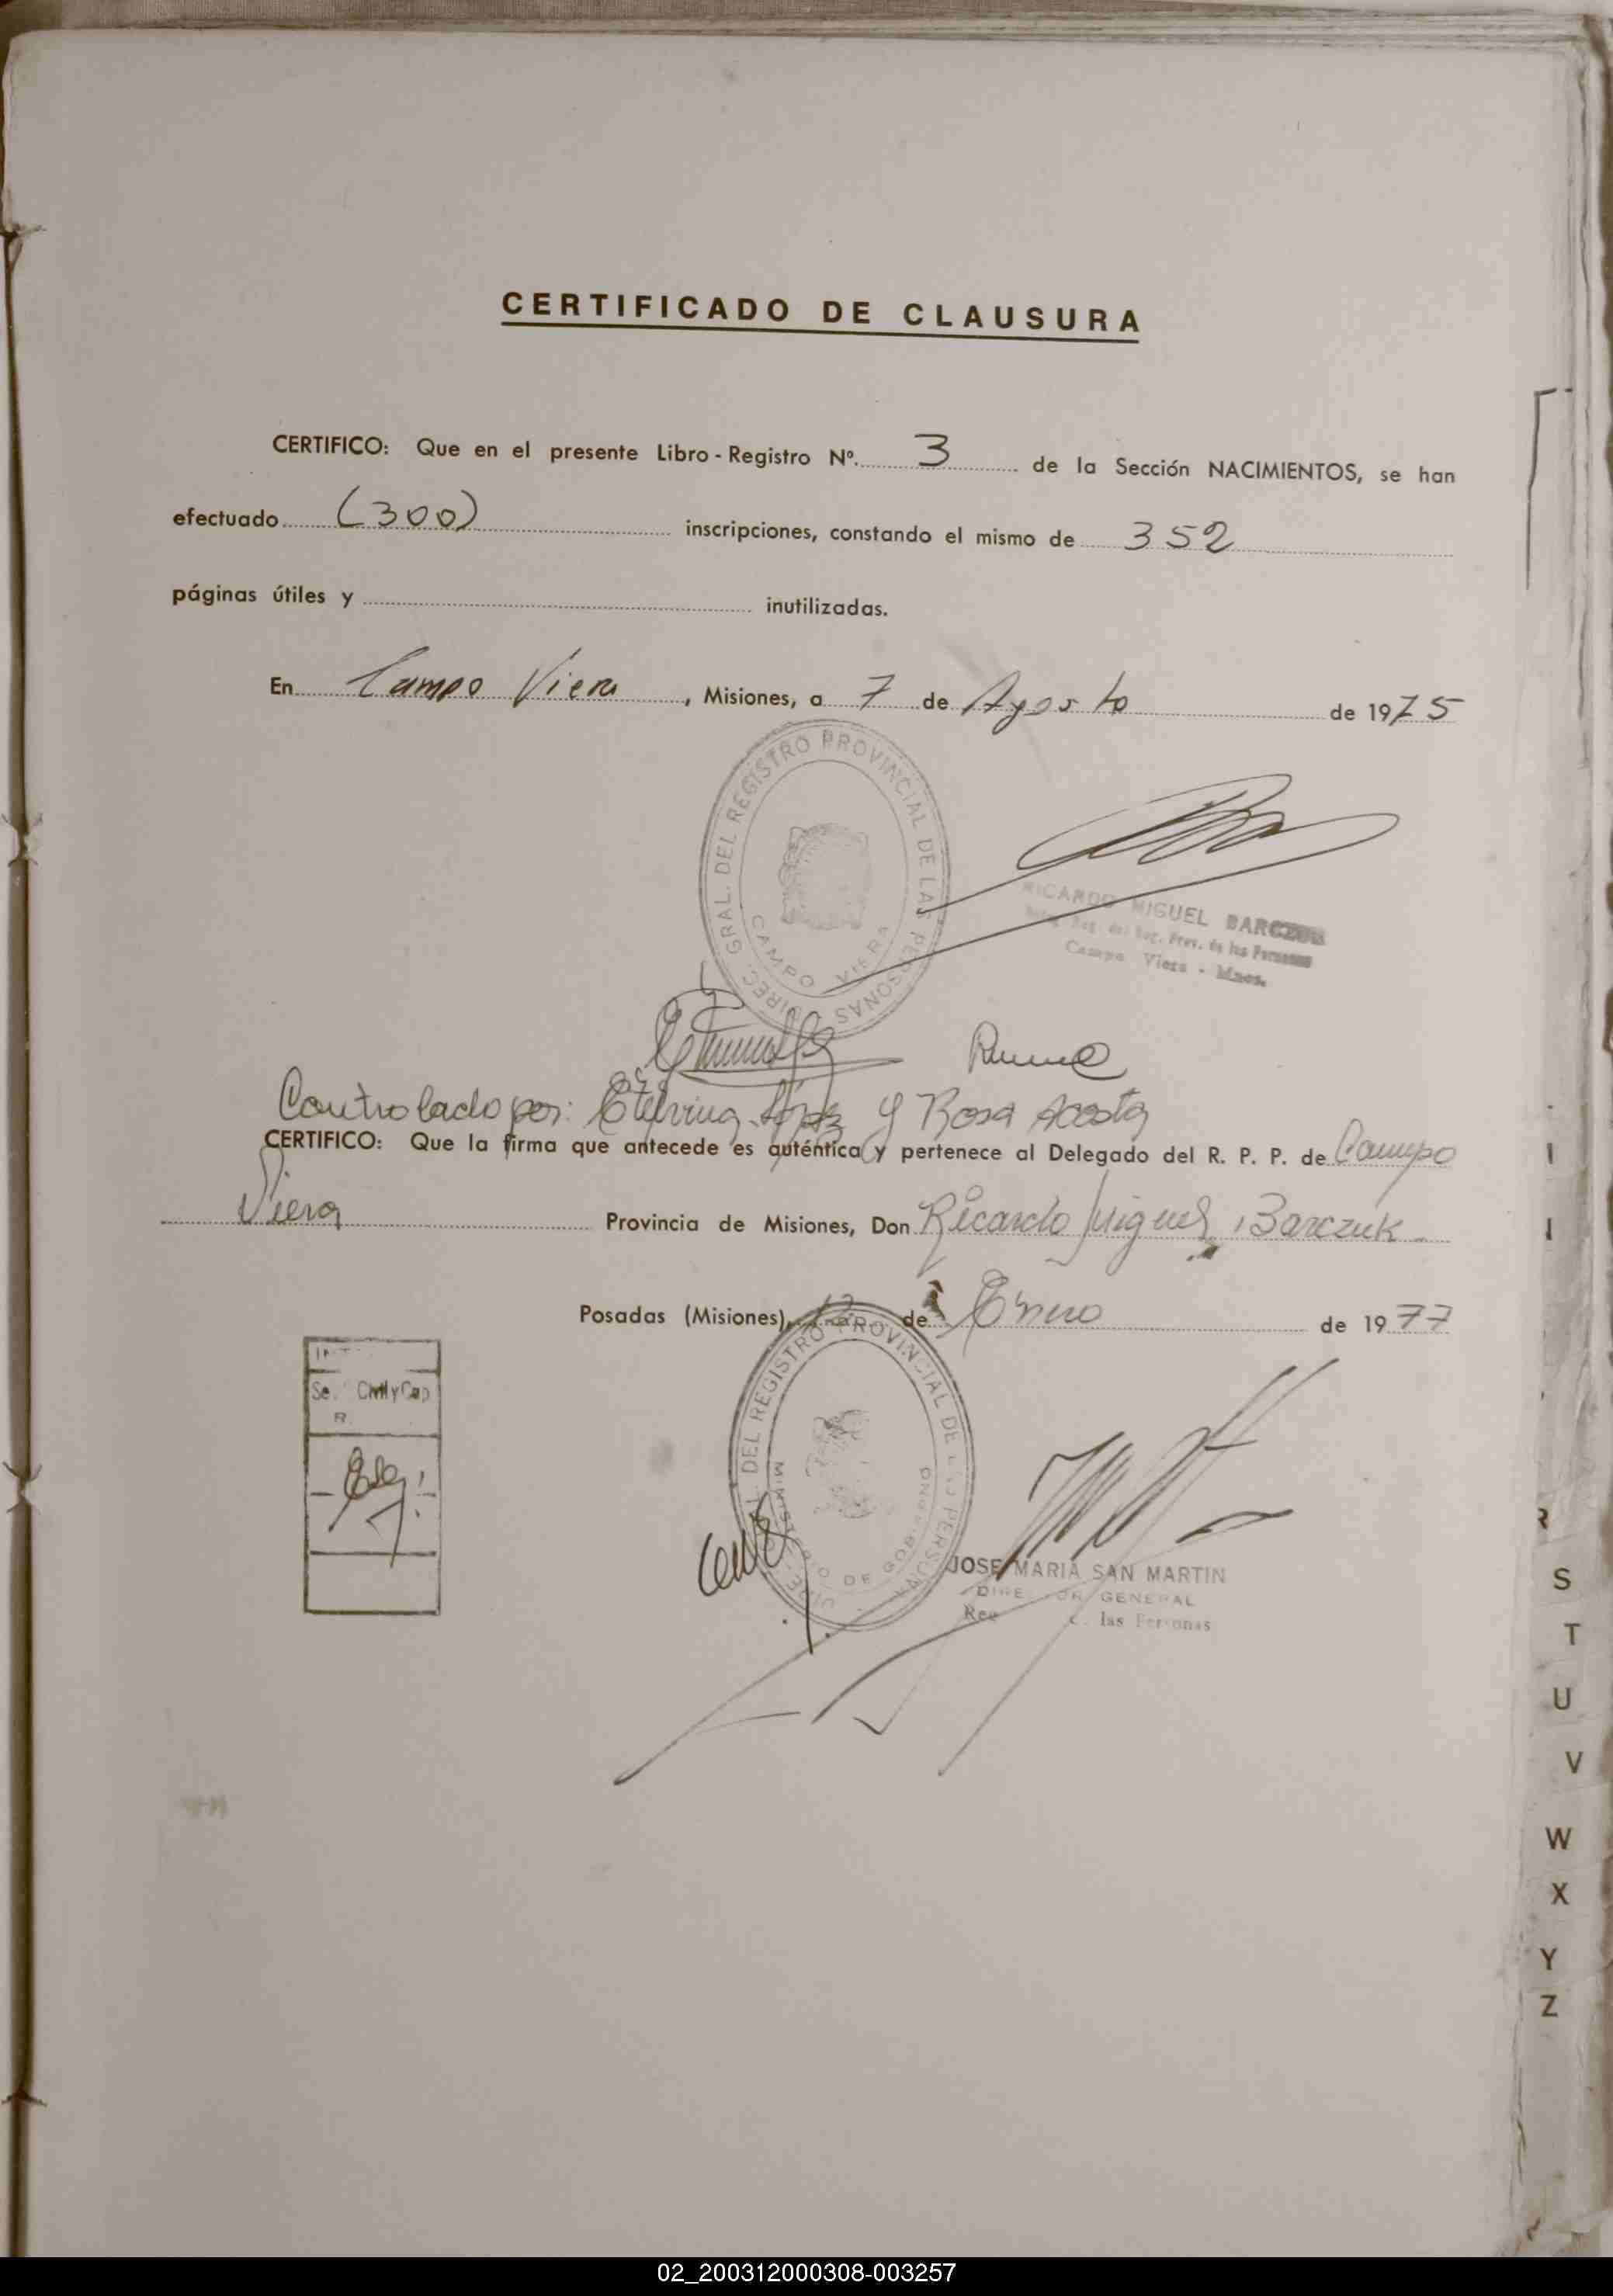 CERTIFICADO DE CLAUSURA
CERTIFICO: Que en el presente Libro-Registro Nº. 3 de la Sección NACIMIENTOS, se han
efectuado (300) inscripciones, constando el mismo de 352
páginas útiles y inutilizadas.
En Campo Viera, Misiones, a 7 de Agosto de 1975
DIREC. GRAL. DEL REGISTRO PROVINCIAL DE LAS PERSONAS
CAMPO VIERA
RICARDO MIGUEL BARCZUK
Reg. Prov. de las Personas
Campo Viera - Mnes.
Controlado por: Etelvina López y Rosa Acosta
CERTIFICO: Que la firma que antecede es auténtica y pertenece al Delegado del R. P. P. de Campo
Viera Provincia de Misiones, Don Ricardo Miguel Barczuk
Posadas (Misiones), 12 de Enero de 1977
DEL REGISTRO PROVINCIAL DE LAS PERSONAS
MINISTERIO DE GOBIERNO
Civil y Cap
JOSE MARIA SAN MARTIN
DIRECTOR GENERAL
las Personas
R
S
T
U
V
W
X
Y
Z
02_200312000308-003257